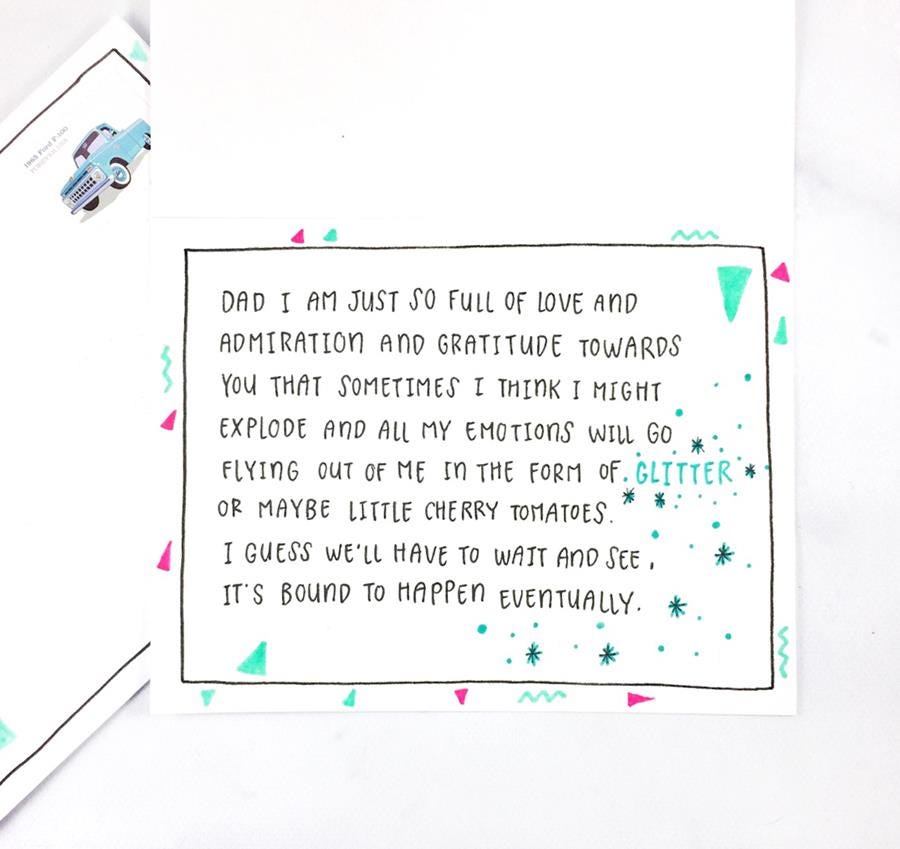 1965 Ford F-100
DAD I AM JUST SO FULL OF LOVE AND
ADMIRATION AND GRATITUDE TOWARDS
YOU THAT SOMETIMES I THINK I MIGHT
EXPLODE AND ALL MY EMOTIONS WILL GO
FLYING OUT OF ME IN THE FORM OF GLITTER
OR MAYBE LITTLE CHERRY TOMATOES.
I GUESS WE'LL HAVE TO WAIT AND SEE.
IT'S BOUND TO HAPPEN EVENTUALLY.